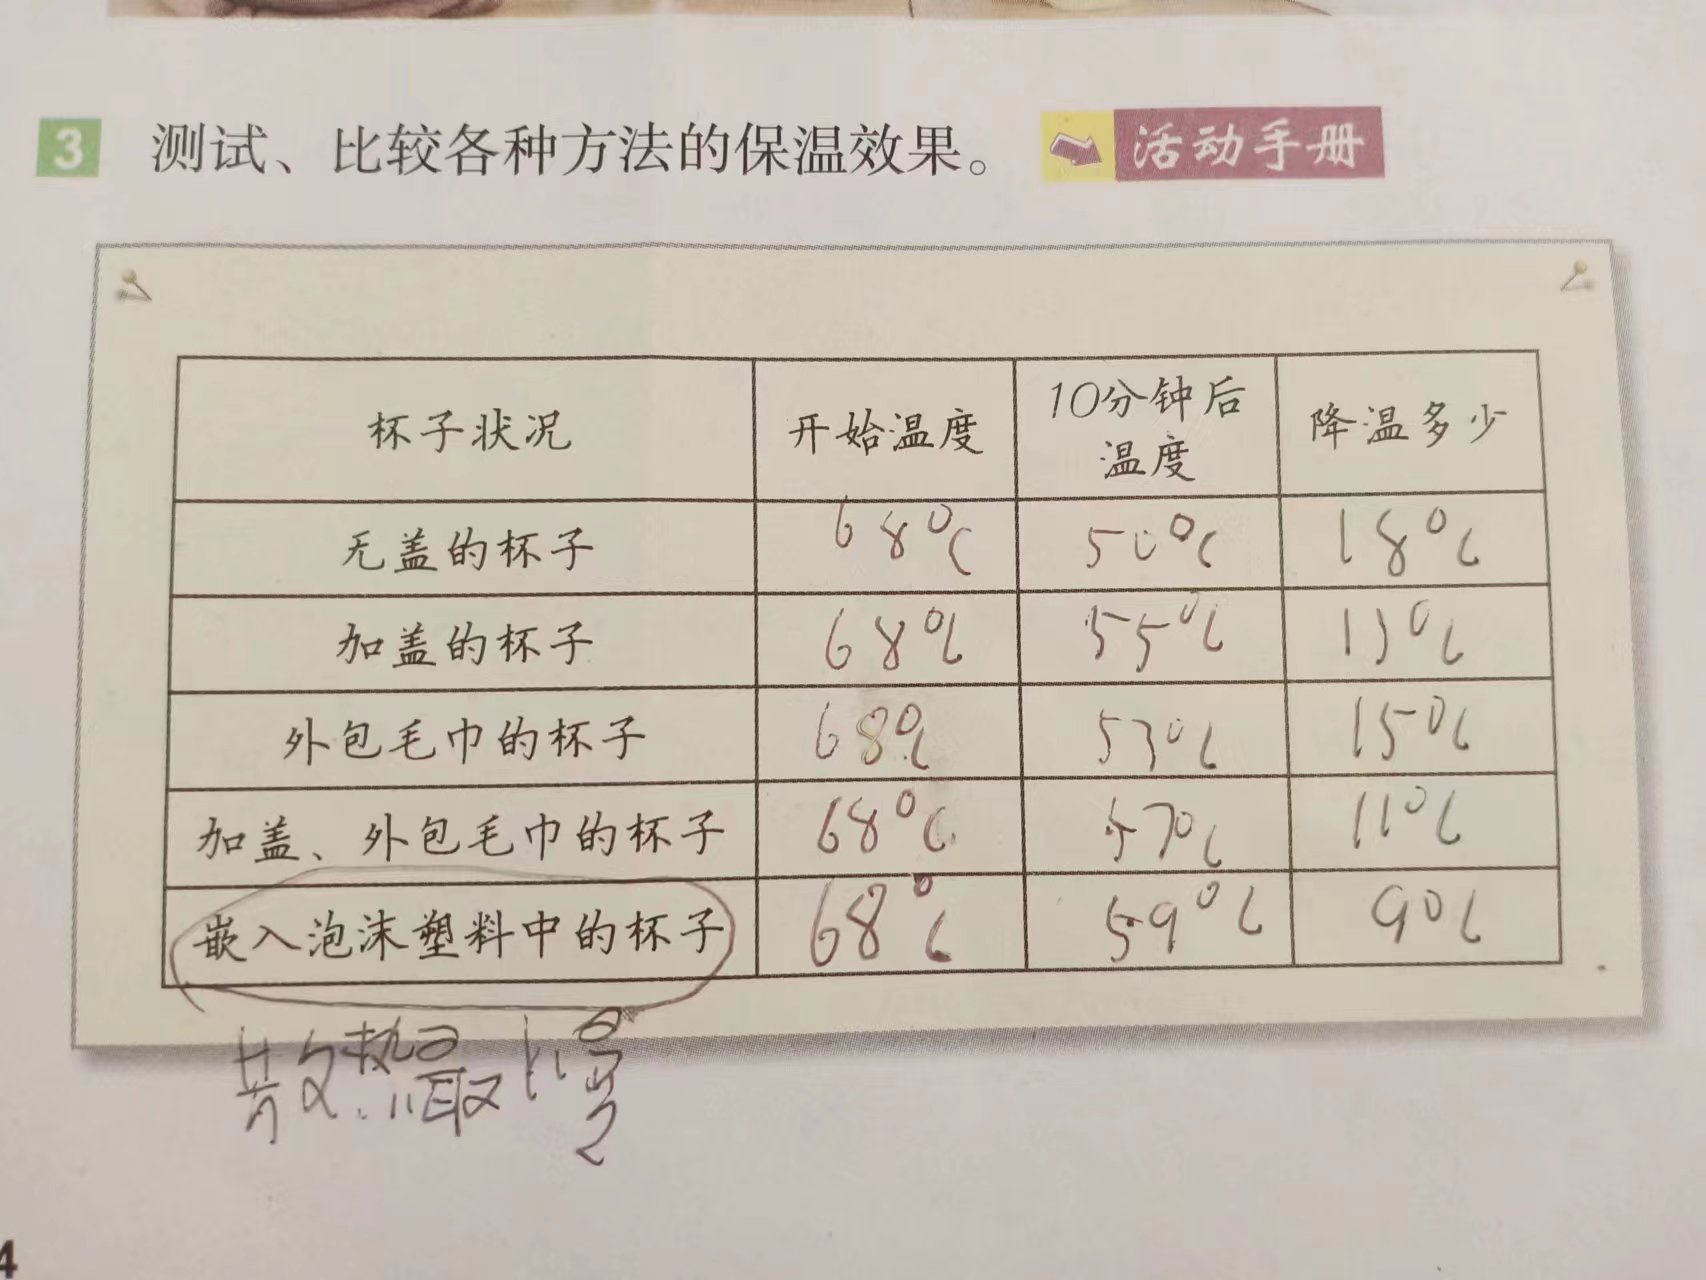 3 测试、比较各种方法的保温效果。 活动手册
杯子状况 开始温度 10分钟后温度 降温多少
无盖的杯子 68℃ 50℃ 18℃
加盖的杯子 68℃ 55℃ 13℃
外包毛巾的杯子 68℃ 53℃ 15℃
加盖、外包毛巾的杯子 68℃ 57℃ 11℃
嵌入泡沫塑料中的杯子 68℃ 59℃ 9℃
散热最慢
4